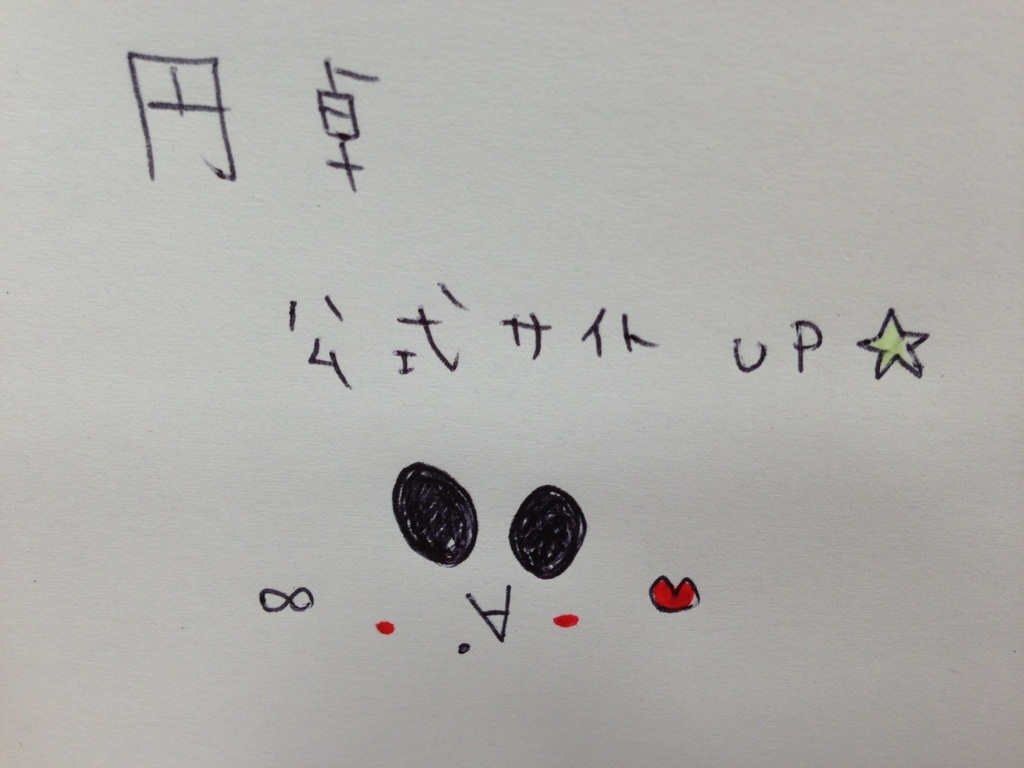 円卓
公式サイト UP☆
∞ ∀